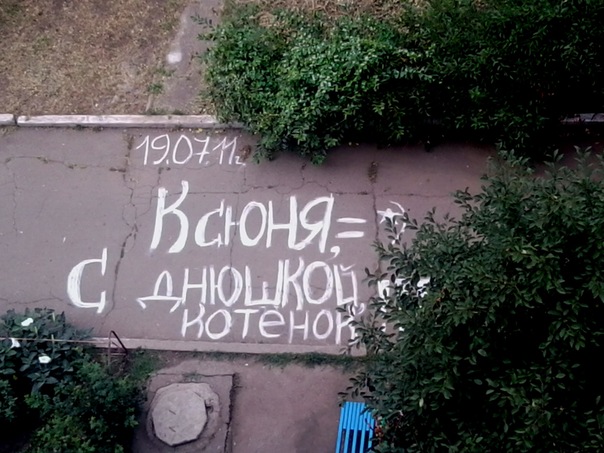 19.07.11г.
Ксюня,=*
С днюшкой
котёнок